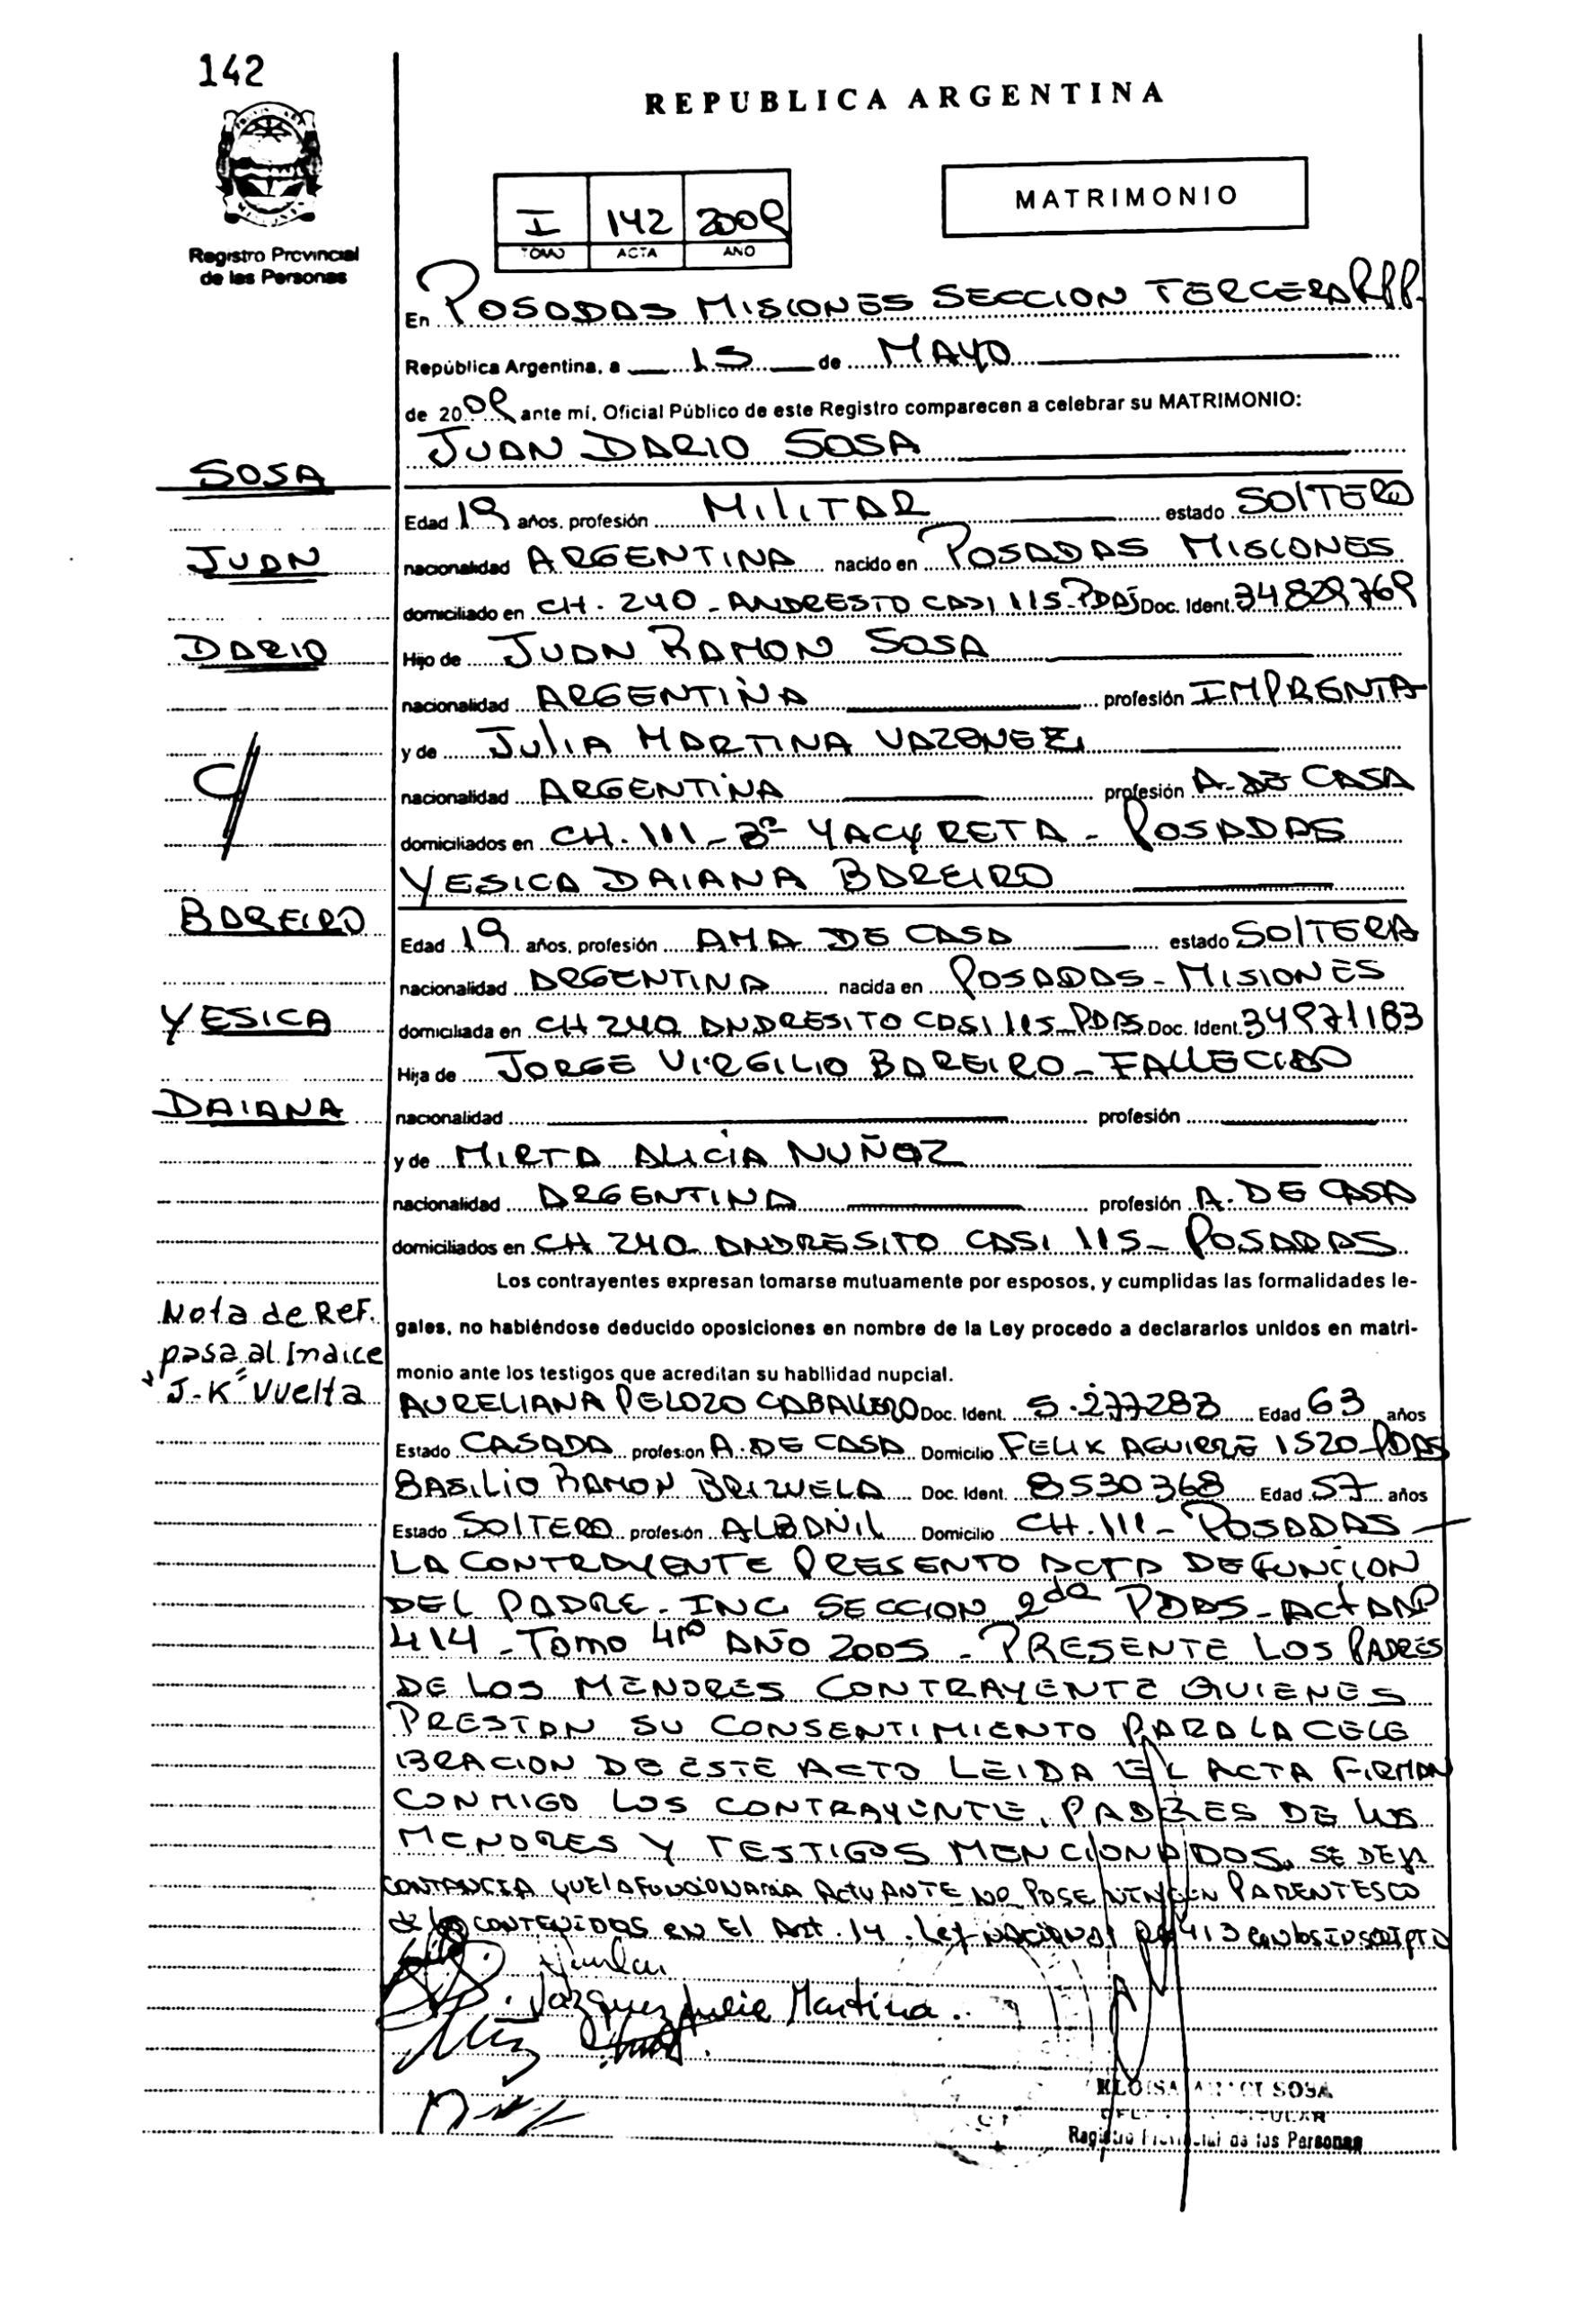 142
REPUBLICA ARGENTINA
MATRIMONIO
I 142 2009
TOMO ACTA AÑO
Registro Provincial
de las Personas
En POSADAS MISIONES SECCION TERCERA RPP.
República Argentina, a 15 de MAYO
de 2009 ante mí, Oficial Público de este Registro comparecen a celebrar su MATRIMONIO:
JUAN DARIO SOSA
SOSA
Edad 19 años, profesión MILITAR estado SOLTERO
JUAN
nacionalidad ARGENTINA nacido en POSADAS MISIONES
domiciliado en CH. 240 - ANDRESTO CASI 115 - PDAS Doc. Ident. 34829769
DARIO
Hijo de JUAN RAMON SOSA
nacionalidad ARGENTINA profesión IMPRENTA
y de JULIA MARTINA VAZQUEZ
C/
nacionalidad ARGENTINA profesión A. DE CASA
domiciliados en CH. 111 - Bº YACYRETA - POSADAS
YESICA DAIANA BAREIRO
BAREIRO
Edad 19 años, profesión AMA DE CASA estado SOLTERA
nacionalidad ARGENTINA nacida en POSADAS - MISIONES
YESICA
domiciliada en CH 240 ANDRESITO CASI 115 - PDAS Doc. Ident. 34971183
Hija de JORGE VIRGILIO BAREIRO - FALLECIDO
DAIANA
nacionalidad profesión
y de MIRTA ALICIA NUÑEZ
nacionalidad ARGENTINA profesión A. DE CASA
domiciliados en CH 240 ANDRESITO CASI 115 - POSADAS
Los contrayentes expresan tomarse mutuamente por esposos, y cumplidas las formalidades le-
gales, no habiéndose deducido oposiciones en nombre de la Ley procedo a declararlos unidos en matri-
monio ante los testigos que acreditan su habilidad nupcial.
Nota de Ref.
pasa al Indice
"J-K" Vuelta
AURELIANA PELOZO CABALLERO Doc. Ident. 5.277283 Edad 63 años
Estado CASADA profesion A. DE CASA Domicilio FELIX AGUIRRE 1520 - PDAS
BASILIO RAMON BRIZUELA Doc. Ident. 8530368 Edad 57 años
Estado SOLTERO profesión ALBAÑIL Domicilio CH. 111 - POSADAS
LA CONTRAYENTE PRESENTO ACTA DEFUNCION
DEL PADRE - INC SECCION 2da PDAS - ACTA Nº
414 - TOMO 4to AÑO 2005 - PRESENTE LOS PADRES
DE LOS MENORES CONTRAYENTE QUIENES
PRESTAN SU CONSENTIMIENTO PARA LA CELE
BRACION DE ESTE ACTO LEIDA EL ACTA FIRMAN
CONMIGO LOS CONTRAYENTE, PADRES DE LOS
MENORES Y TESTIGOS MENCIONADOS. SE DEJA
CONTANCIA QUE LA FUNCIONARIA ACTUANTE NO POSE NINGEN PARENTESCO
de los CONTENIDOS EN El Art. 14. Ley NACIONAL 26413 con los INSCRIPTO
Vazquez Julia Martina.
ELOISA SOSA
TITULAR
Registro Provincial de las Personas